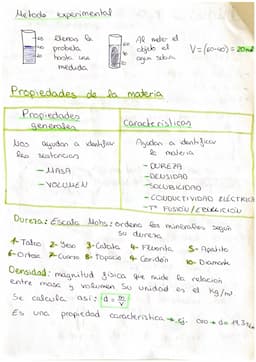 Método experimental
60
40
20
llenas la
probeta
hasta una
medida
60
40
20
Al meter el
objeto el
agua subirá
V = (60-40) = 20 ml
Propiedades de la materia
Propiedades
generales
Características
Nos ayudan a identificar
las sustancias
- MASA
- VOLUMEN
Ayudan a identificar
la materia
- DUREZA
- DENSIDAD
- SOLUBILIDAD
- CONDUCTIVIDAD ELÉCTRICA
- Tº FUSIÓN/EBULLICIÓN
Dureza: Escala Mohs: ordena los minerales según
su dureza
1- Talco 2- Yeso 3- Calcita 4- Fluorita 5- Apatito
6- Ortosa 7- Cuarzo 8- Topacio 9- Coridón 10- Diamante
Densidad: magnitud física que mide la relación
entre masa y volumen. Su unidad es el Kg/m³
Se calcula así: d = m/V
Es una propiedad característica → ej. oro → d = 19,3